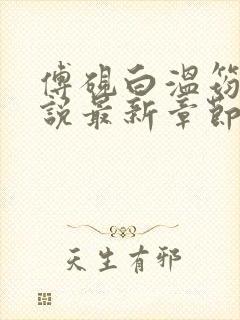 傅硯白溫芴
說最新章節
天生有邪